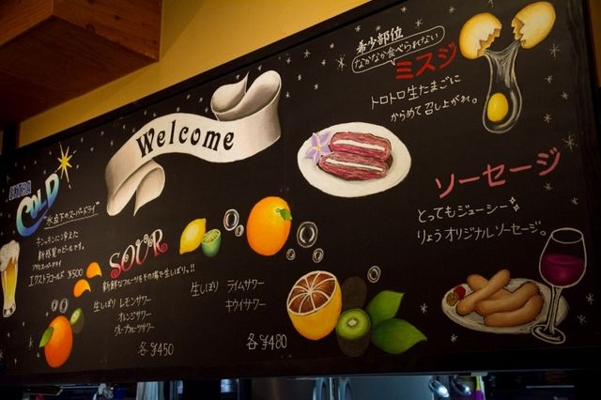 Welcome
希少部位
なかなか食べられない
ミスジ
トロトロ生たまごに
からめて召し上がれ。
ソーセージ
とってもジューシー
りょうオリジナルソーセージ。
EXTRA
COLD
"氷点下のスーパードライ"
キンッキンに冷えた
新感覚のビールです。
アサヒスーパードライ
エクストラコールド ¥500
SOUR
新鮮なフルーツをその場で生しぼり。!!
生しぼり レモンサワー
オレンジサワー
グレープフルーツサワー
各¥450
生しぼり ライムサワー
キウイサワー
各¥480